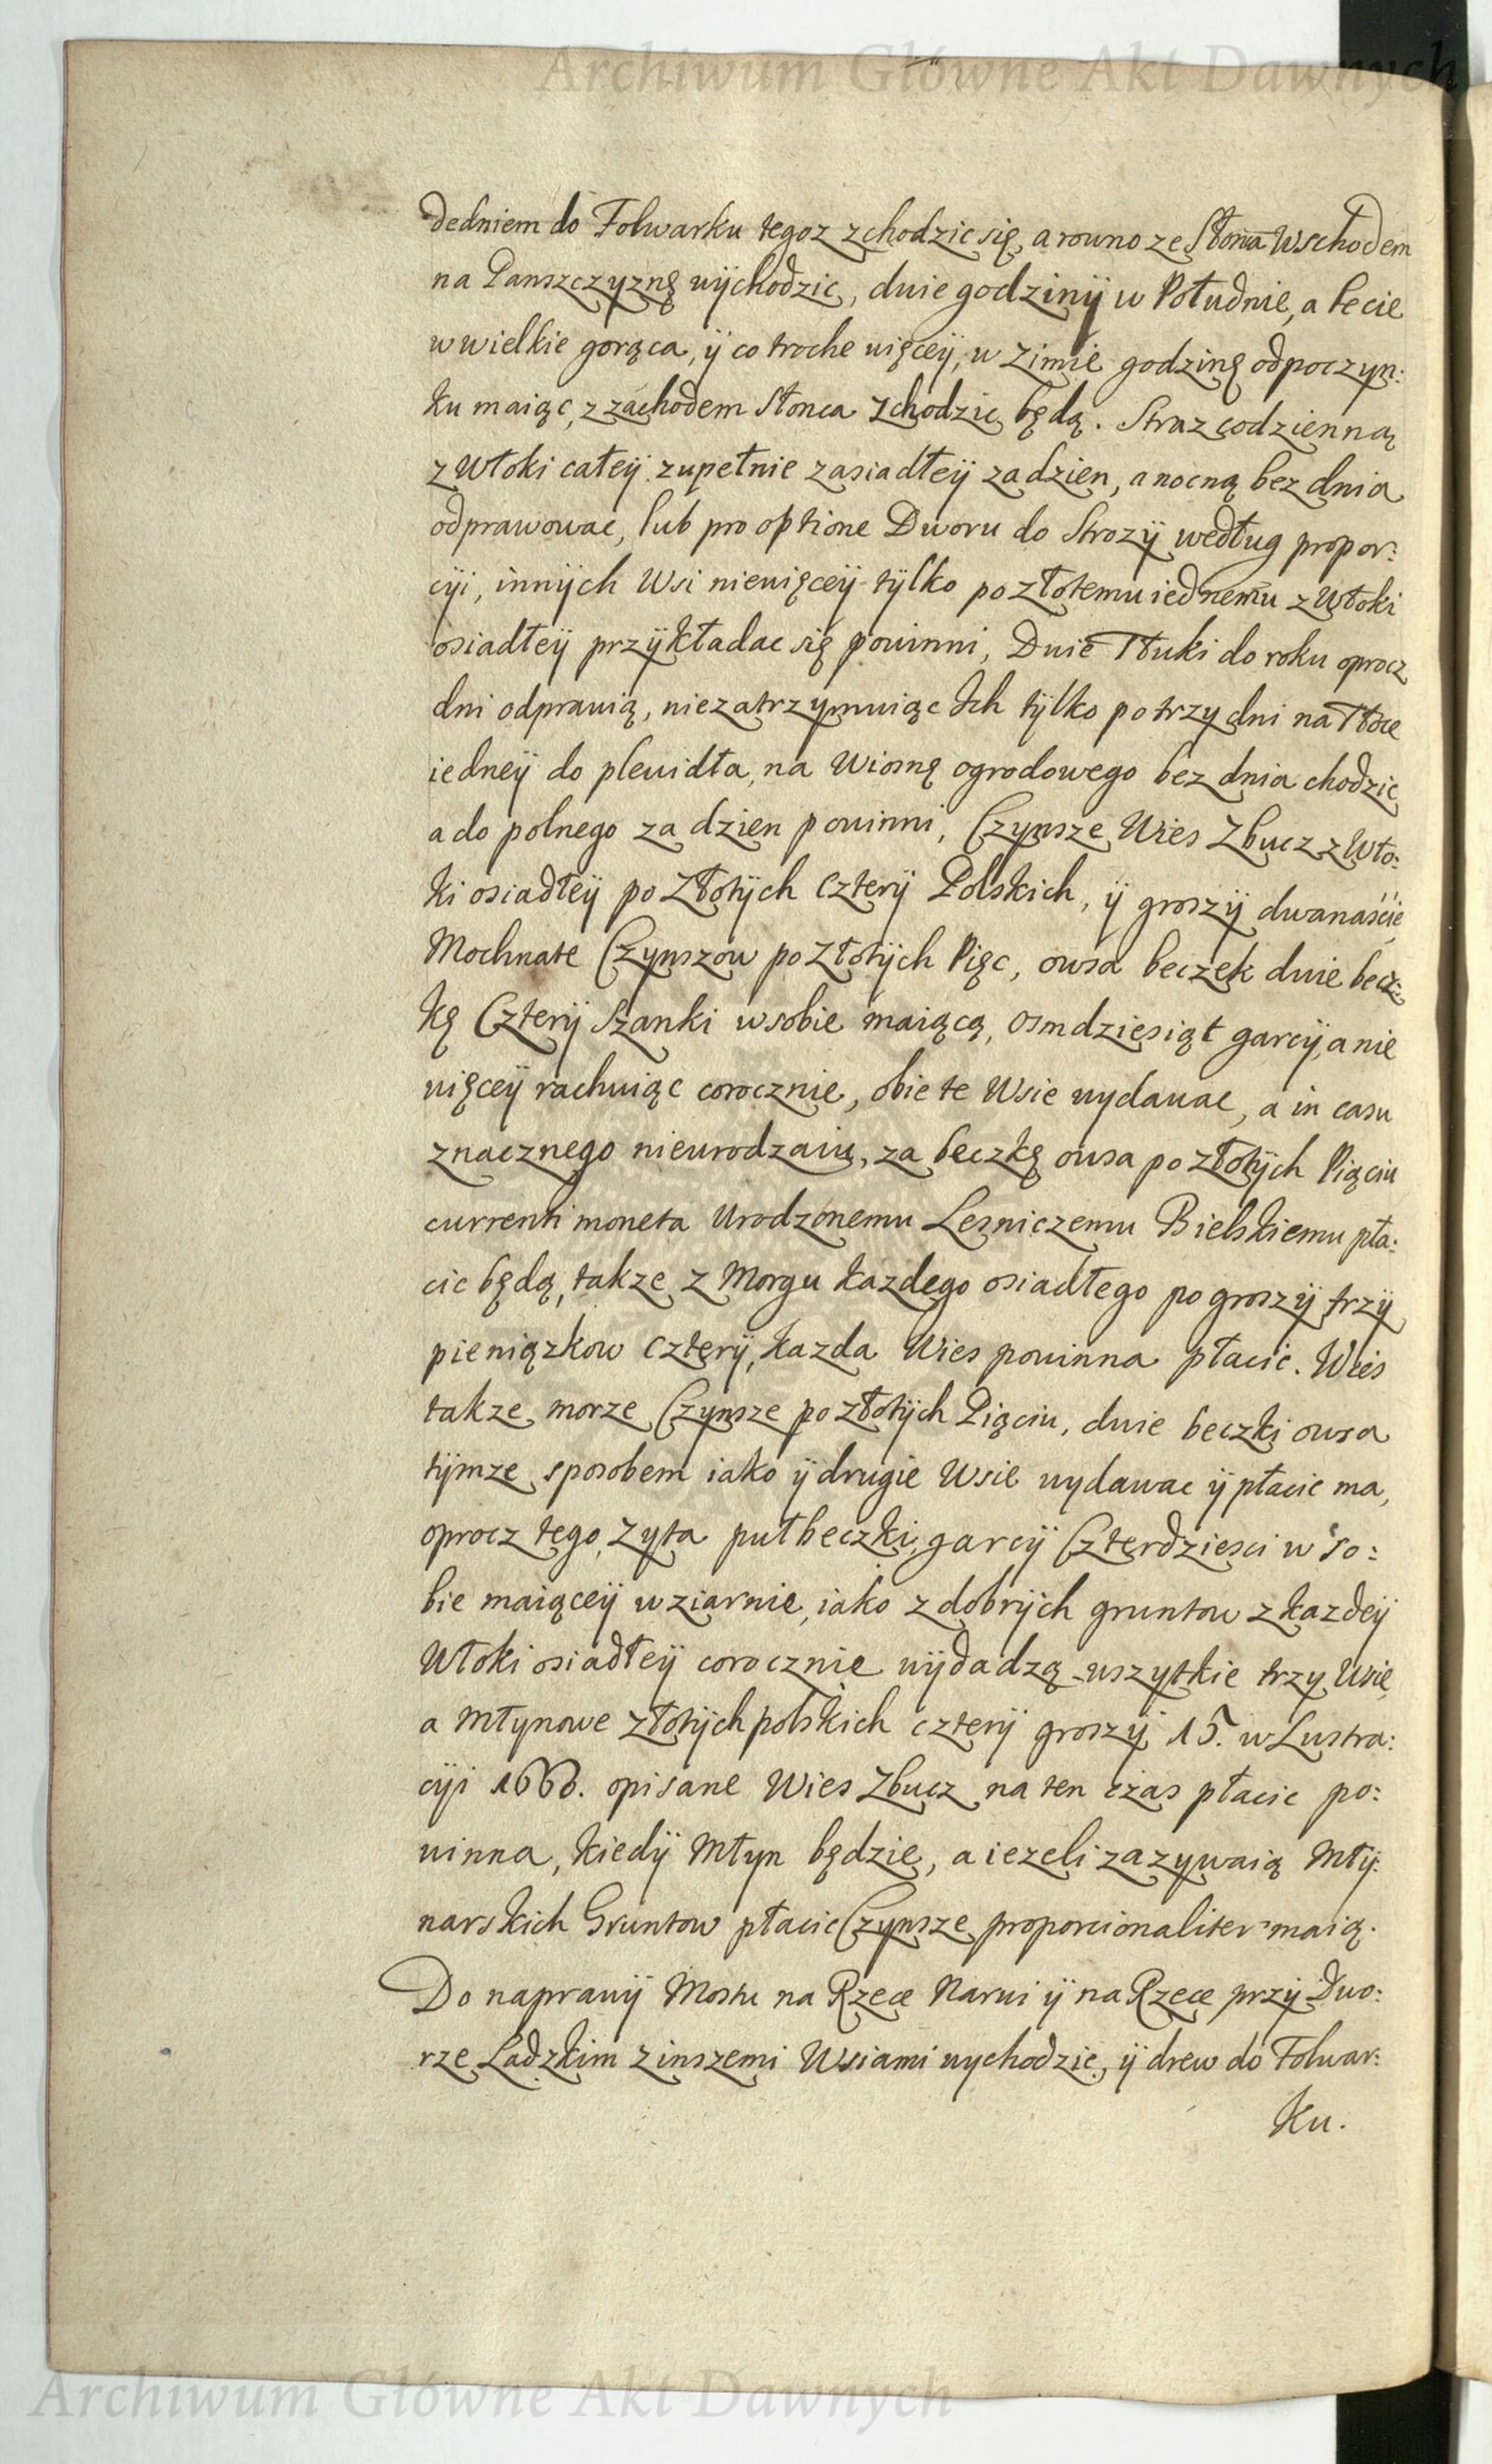 Archiwum Główne Akt Dawnych
dedniem do Folwarku tegoz zchodzic się, a rowno ze Słonca Wschodem
na Panszczyznę wÿchodzic, dwie godzinÿ w Południe, a lecie
w wielkie gorąca, ÿ co troche więceÿ, w zimie godzinę odpoczyn:
ku maiąc, z zachodem Słonca zchodzic będą. Straz codzienną
z Włoki całeÿ zupełnie zasiadłeÿ za dzien, a nocną bez dnia
odprawowac, lub pro optione Dworu do Strozÿ według propor:
cÿi, innÿch Wsi niewięceÿ tÿlko po złotemu iednemu z Włoki
osiadłeÿ przÿkładac się powinni, Dwie Tłuki do roku oprocz
dni odprawią, niezatrzymuiąc Ich tÿlko po trzy dni na Tłoce
iedneÿ do plewidła, na Wiosnę ogrodowego bez dnia chodzic,
a do polnego za dzien powinni, Czynsze Wies Zbucz z Wło:
ki osiadłeÿ po Złotÿch czterÿ Polskich, ÿ groszÿ dwanaście
Mochnate Czynszow po Złotÿch Pięc, owsa beczek dwie becz:
kę Czterÿ Szanki w sobie maiącą, osmdziesiąt garcÿ, a nie
więceÿ rachuiąc corocznie, obie te Wsie wydawac, a in casu
znacznego nieurodzaiu, za beczkę owsa po złotÿch Piąciu
currenti moneta Urodzonemu Lesniczemu Bielskiemu pła:
cic będą, takze z Morgu kazdego osiadłego po groszÿ trzÿ
pieniązkow czterÿ, kazda Wies powinna płacic. Wies
takze morze Czynsze po złotÿch Piąciu, dwie beczki owsa
tÿmze sposobem iako ÿ drugie Wsie wydawac ÿ płacic ma,
oprocz tego zyta puł beczki, garcÿ Czterdziesci w so:
bie maiąceÿ w ziarnie, iako z dobrÿch gruntow z kazdeÿ
Włoki osiadłeÿ corocznie wÿdadzą wszytkie trzy Wsie,
a Młynowe złotÿch polskich czterÿ groszÿ 15. w Lustra:
cÿi opisane Wies Zbucz na ten czas płacic po:
winna, kiedÿ Młyn będzie, a iezeli zazywaią Młÿ:
narskich Gruntow płacic Czynsze proporcionaliter maią.
Do naprawÿ Mostu na Rzece Narwi ÿ na Rzece przÿ Dwo:
rze Ladzkim z inszemi Wsiami wychodzic, ÿ drew do Folwar:
ku.
Archiwum Główne Akt Dawnych